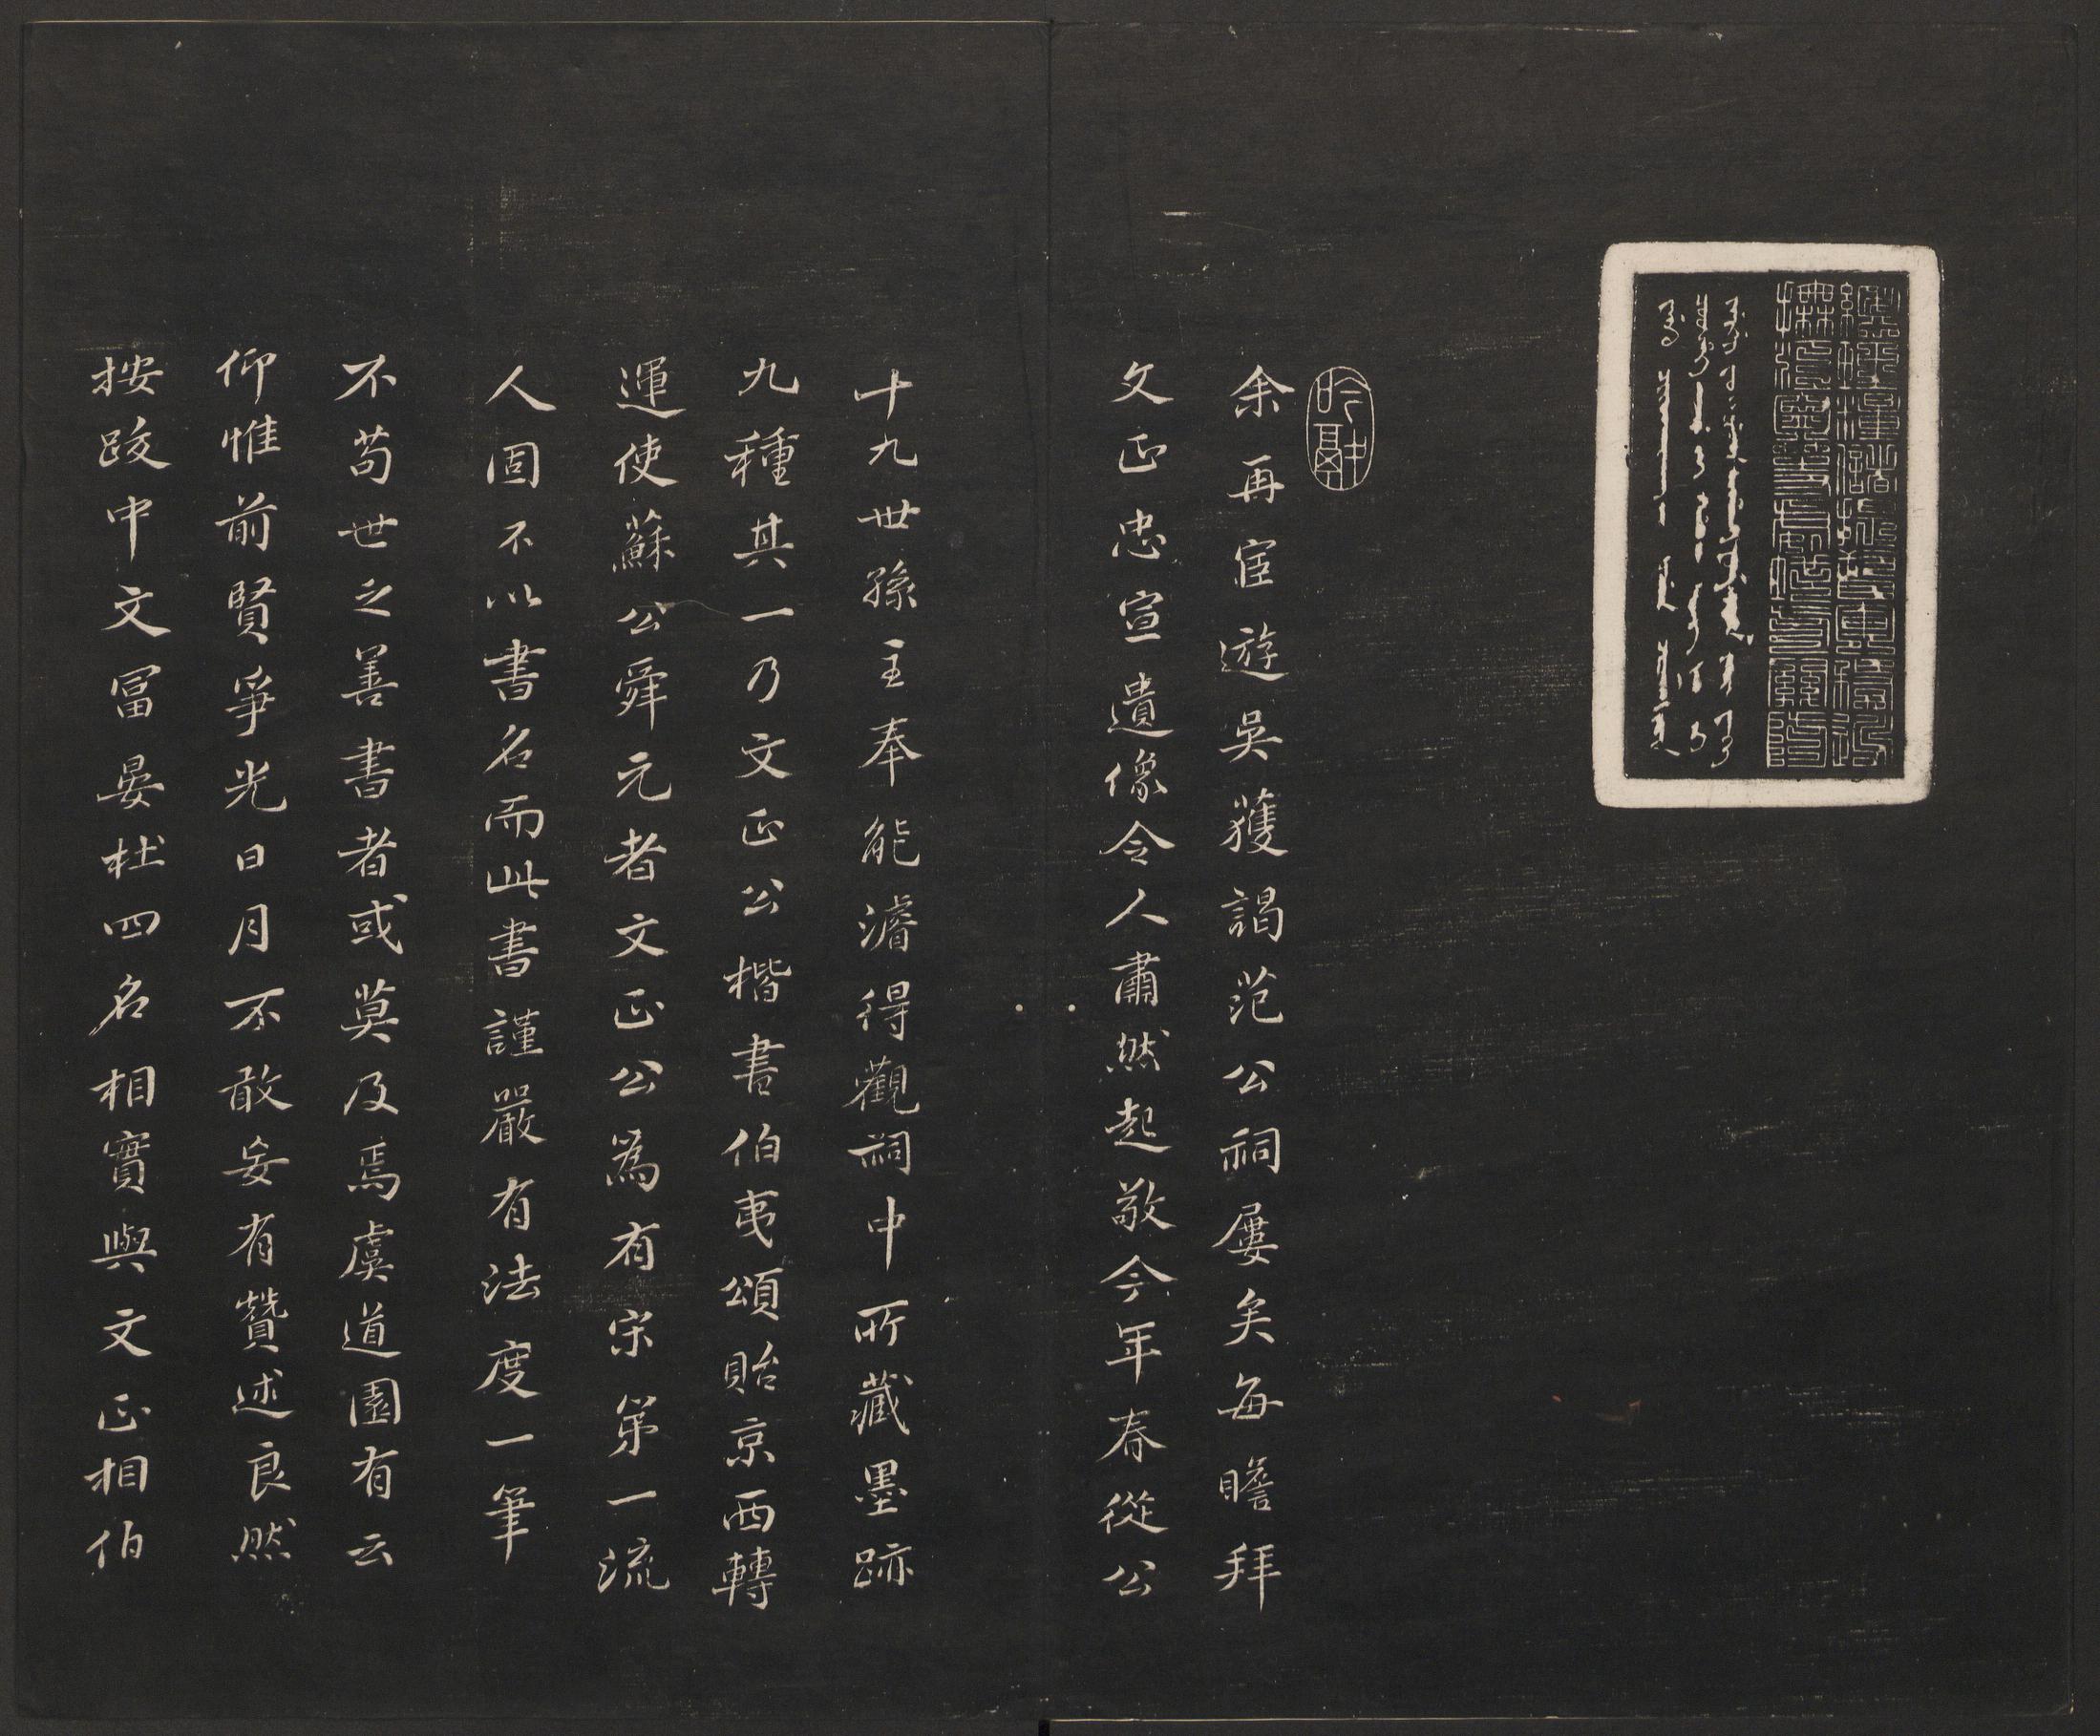 余再宦遊吳獲謁范公祠屢矣每瞻拜
文正忠宣遺像令人肅然起敬今年春從公
十九世孫主奉能濬得觀祠中所藏墨跡
九種其一乃文正公楷書伯夷頌貽京西轉
運使蘇公舜元者文正公為有宋第一流
人固不以書名而此書謹嚴有法度一筆
不苟世之善書者或莫及焉虞道園有云
仰惟前賢爭光日月不敢妄有贊述良然
按跋中文富晏杜四名相實與文正相伯